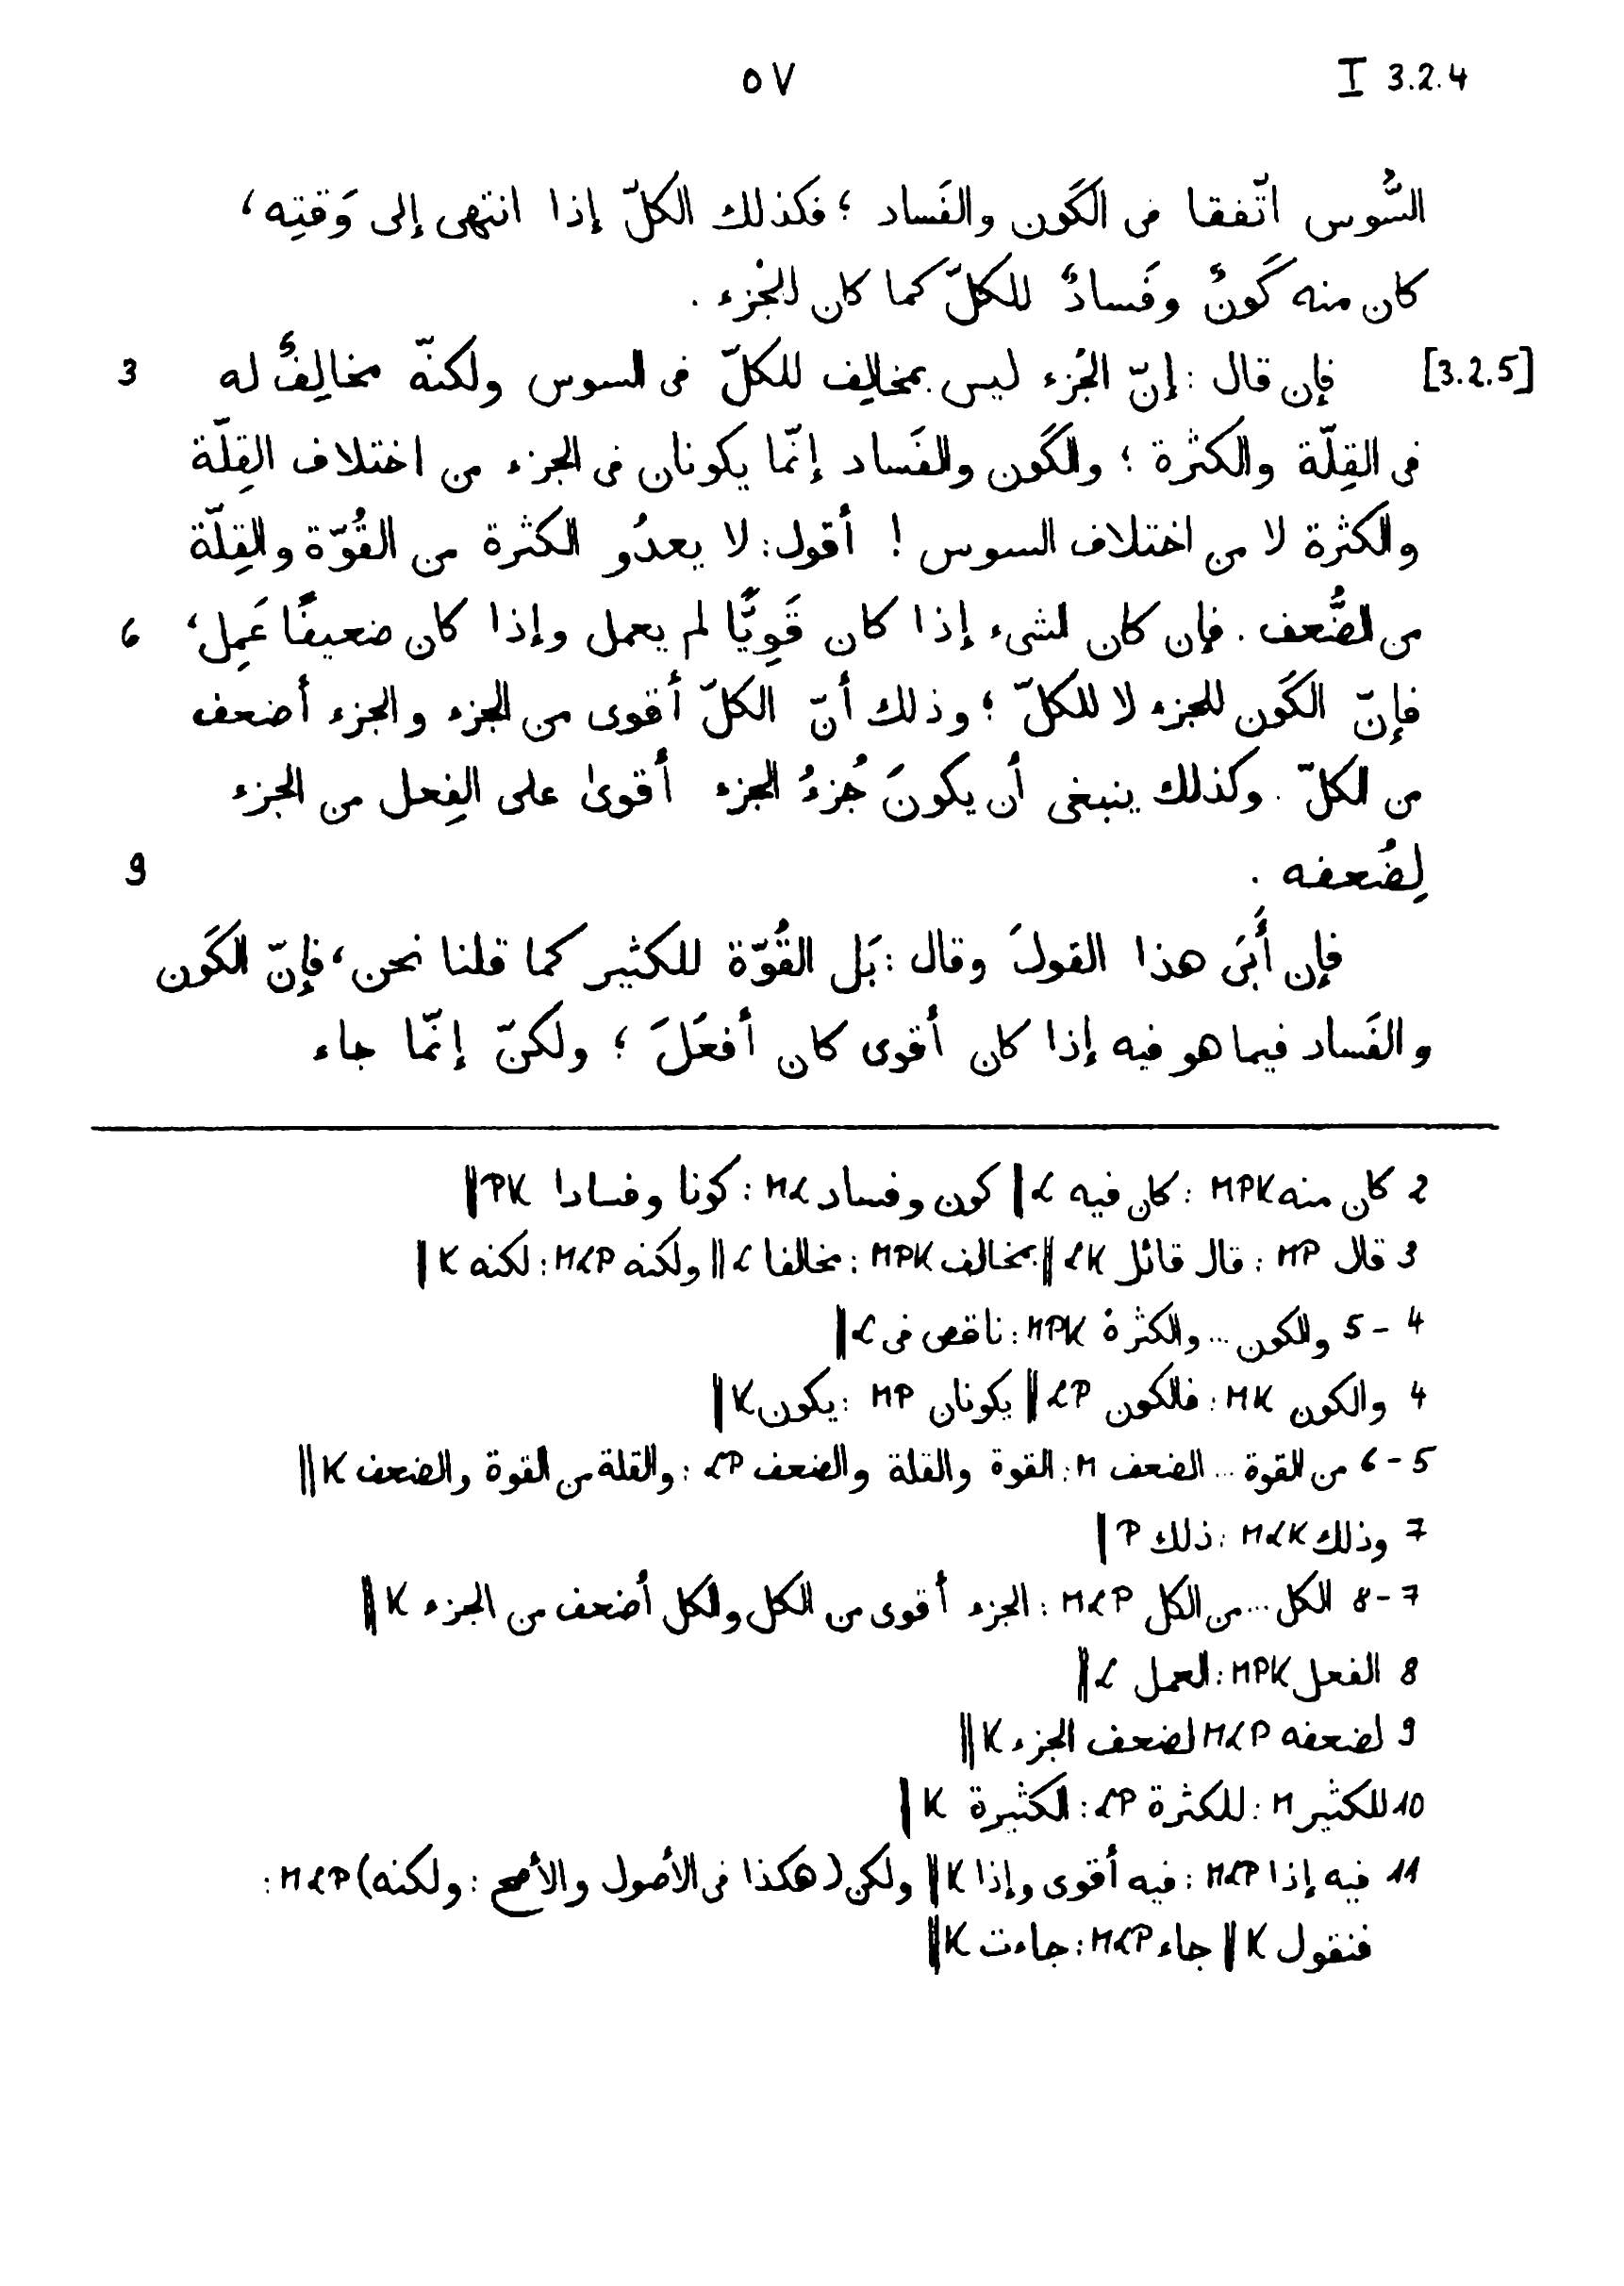 I 3.2.4 ٥٧
السُّوس اتّفقا فى الكَون والفَساد ؛ فكذلك الكلّ إذا انتهى إلى وَقتِه ،
كان منه كَونٌ وفَسادٌ للكلّ كما كان للجُزء .
[3.2.5] فإن قال : إنّ الجُزء ليس بمخالِف للكلّ فى السوس ولكنّه مخالِفٌ له 3
فى القِلّة والكثرة ؛ والكَون والفَساد إنّما يكونان فى الجزء من اختلاف القِلّة
والكثرة لا من اختلاف السوس ! أقول : لا يعدُو الكثرة من القُوّة والقِلّة
من الضُّعف . فإن كان الشىء إذا كان قَوِيًّا لم يعمل وإذا كان ضعيفًا عَمِل ، 6
فإنّ الكَون للجزء لا للكلّ ؛ وذلك أنّ الكلّ أقوى من الجزء والجزء أضعف
من الكلّ . وكذلك ينبغى أن يكونَ جُزءُ الجزء أقوىٰ على الفِعل من الجزء
لِضُعفه . 9
فإن أَبَى هذا القولَ وقال : بَل القُوّة للكثير كما قلنا نحن ، فإنّ الكَون
والفَساد فيما هو فيه إذا كان أقوى كان أفعَلَ ؛ ولكنّ إنّما جاء
2 كان منه MPK : كان فيه L || كون وفساد ML : كونا وفسادا PK ||
3 قال MP : قال قائل LK || بمخالف MPK : مخالفا L || ولكنه MLP : لكنه K ||
4 - 5 والكون ... والكثرة MPK : ناقص فى L ||
4 والكون MK : فالكون LP || يكونان MP : يكون K ||
5 - 6 من القوة ... الضعف M : القوة والقلة والضعف LP : والقلة من القوة والضعف K ||
7 وذلك MLK : ذلك P ||
7 - 8 الكل ... من الكل MLP : الجزء أقوى من الكل والكل أضعف من الجزء K ||
8 الفعل MPK : العمل L ||
9 لضعفه MLP لضعف الجزء K ||
10 للكثير M : للكثرة LP : الكثيرة K ||
11 فيه إذا MLP : فيه أقوى وإذا K || ولكن ( هكذا فى الأصول والأصح : ولكنه ) MLP :
فنقول K || جاء MLP : جاءت K ||